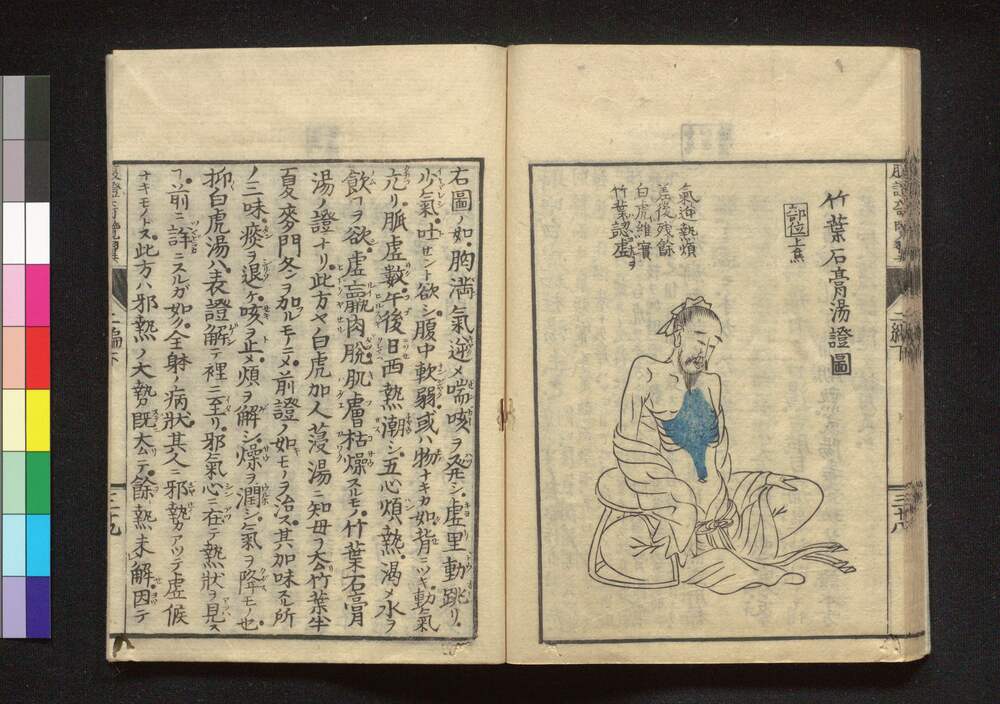 竹葉石膏湯證圖
部位上焦
氣逆熱煩
差後残餘
白虎維實
竹葉認虚
右圖ノ如ク胸満氣逆〆喘咳ヲ発シ虚里動跳リ
少氣吐セント欲シ腹中軟弱或ハ物ナキカ如背ニツキ動氣
亢リ脈虚數午後日西熱潮シ五心煩熱渇〆水ヲ
飲ヿヲ欲虚羸肉脱肌膚枯燥スルモノ竹葉石膏
湯ノ證ナリ此方ヤ白虎加人葠湯ニ知母ヲ去竹葉半
夏麥門冬ヲ加ルモノニ〆前證ノ如モノヲ治ス其加味スル所
ノ三味痰ヲ退ケ咳ヲ止〆煩ヲ解シ燥ヲ潤シ氣ヲ降モノ也
抑白虎湯ハ表證解テ裡ニ至リ邪氣心ニ在テ熱狀ヲ見ス
ヿ前ニ詳ニスルガ如ク全躰ノ病狀其人ニ邪熱カアツテ虚候
ナキモノトス此方ハ邪熱ノ大勢既去テ餘熱未解因テ